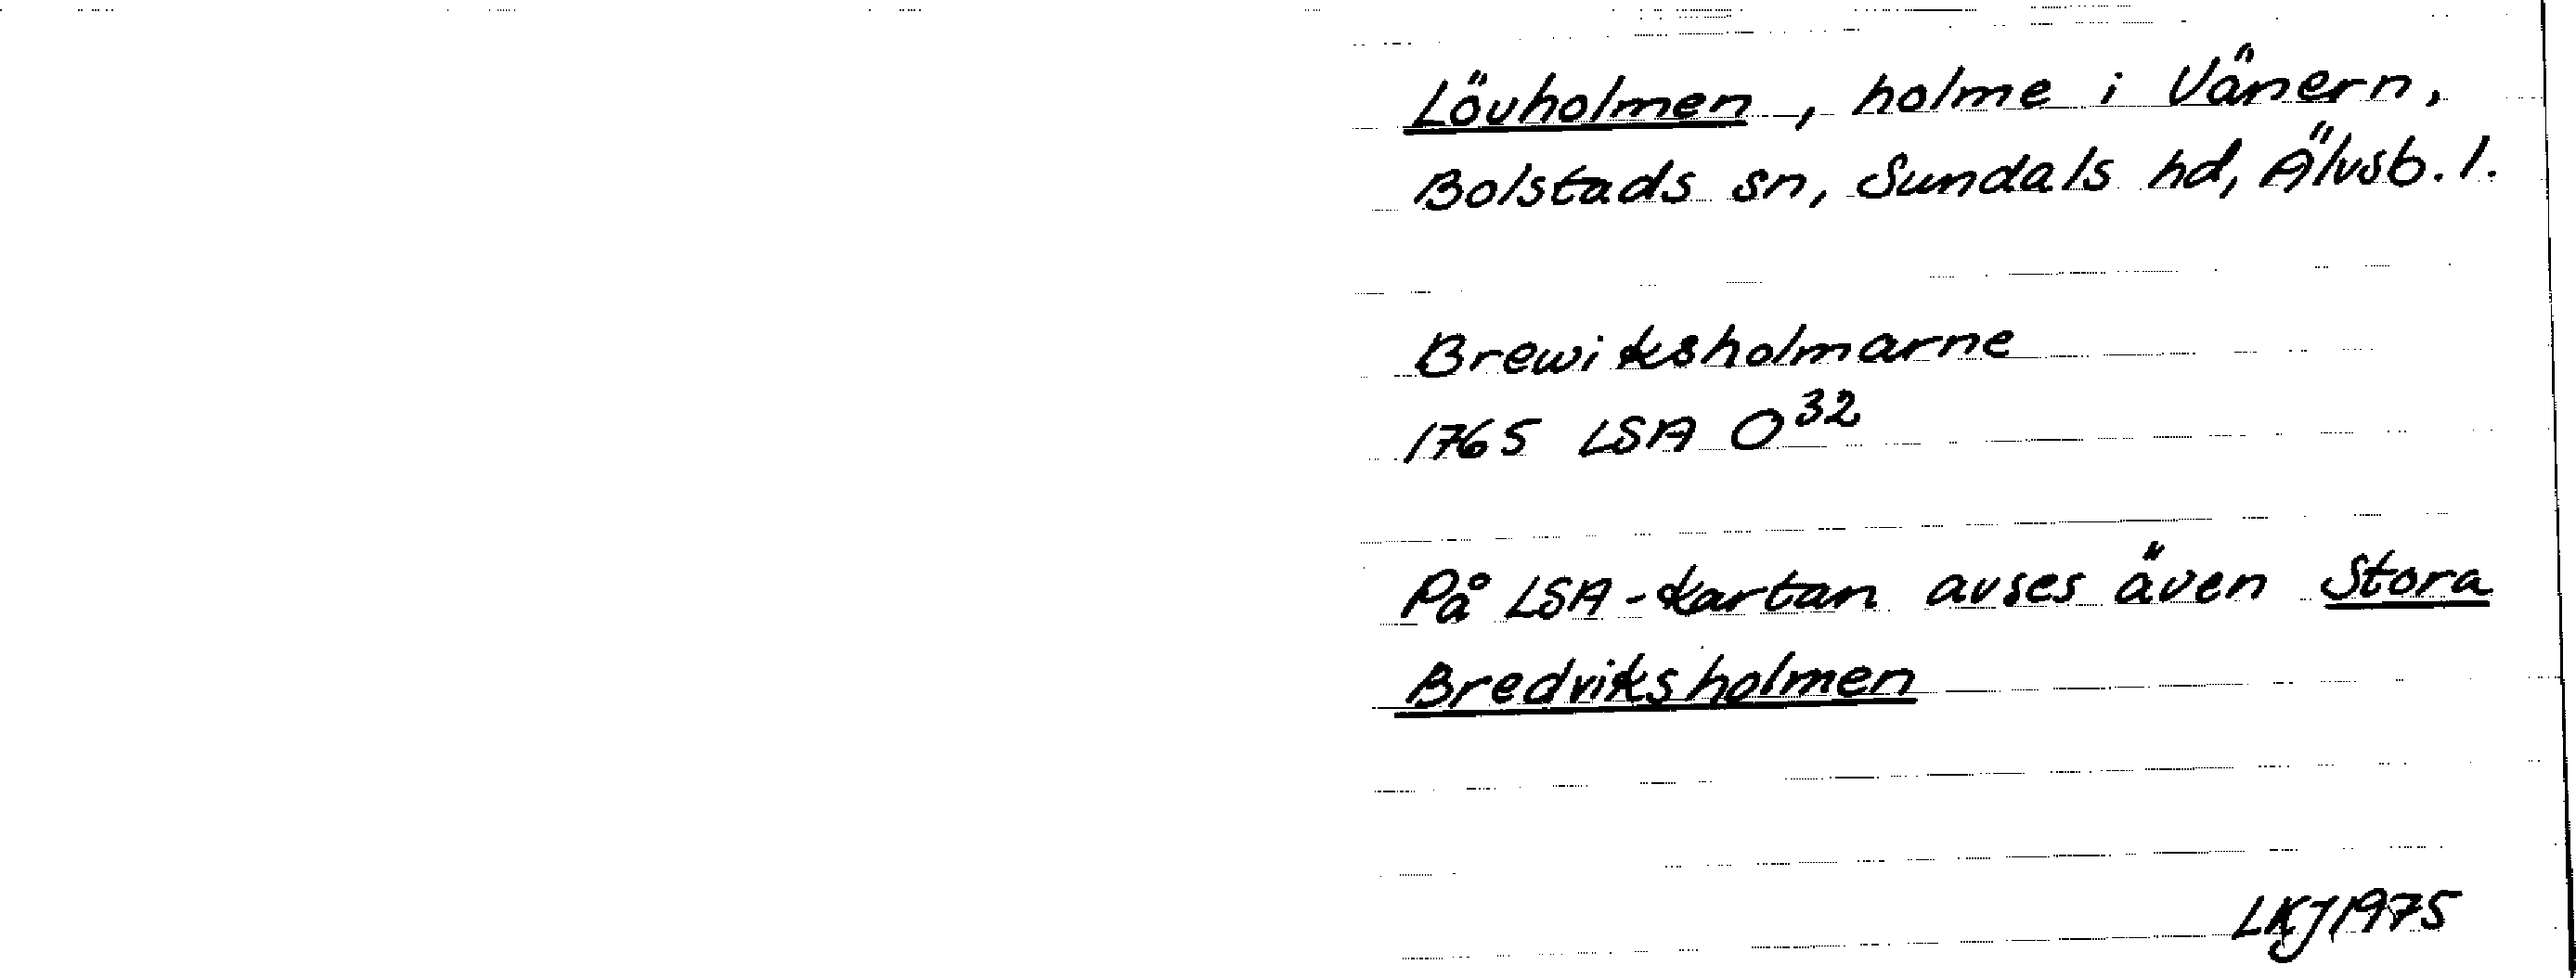 Lövholmen, holme i Vänern,
Bolstads sn, Sundals hd, Älvsb. l.
Brewiksholmarne
1765 LSA O³²
På LSA-kartan avses även Stora
Bredviksholmen
LKJ 1975